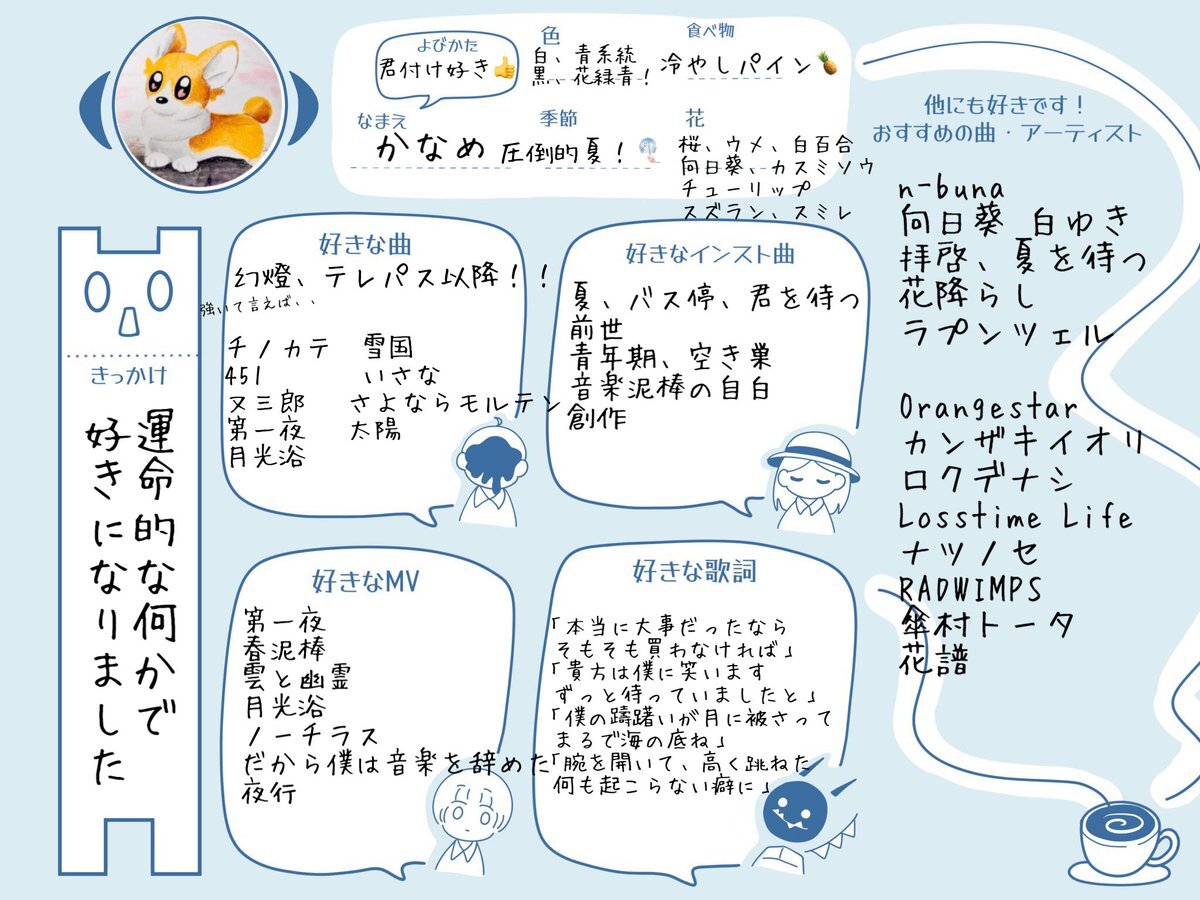 よびかた
君付け好き👍
色
白、青系統
黒、花緑青!
食べ物
冷やしパイン🍍
なまえ
かなめ
季節
圧倒的夏!🎐
花
桜、ウメ、白百合
向日葵、カスミソウ
チューリップ
スズラン、スミレ
きっかけ
運命的な何かで
好きになりました
好きな曲
幻燈、テレパス以降!!
強いて言えば、、
チノカテ 雪国
451 いさな
又三郎 さよならモルテン
第一夜 太陽
月光浴
好きなインスト曲
夏、バス停、君を待つ
前世
青年期、空き巣
音楽泥棒の自白
創作
好きなMV
第一夜
春泥棒
雲と幽霊
月光浴
ノーチラス
だから僕は音楽を辞めた
夜行
好きな歌詞
「本当に大事だったなら
そもそも買わなければ」
「貴方は僕に笑います
ずっと待っていましたと」
「僕の躊躇いが月に被さって
まるで海の底ね」
「腕を開いて、高く跳ねた
何も起こらない癖に」
他にも好きです!
おすすめの曲・アーティスト
n-buna
向日葵 白ゆき
拝啓、夏を待つ
花降らし
ラプンツェル
Orangestar
カンザキイオリ
ロクデナシ
Losstime Life
ナツノセ
RADWIMPS
傘村トータ
花譜